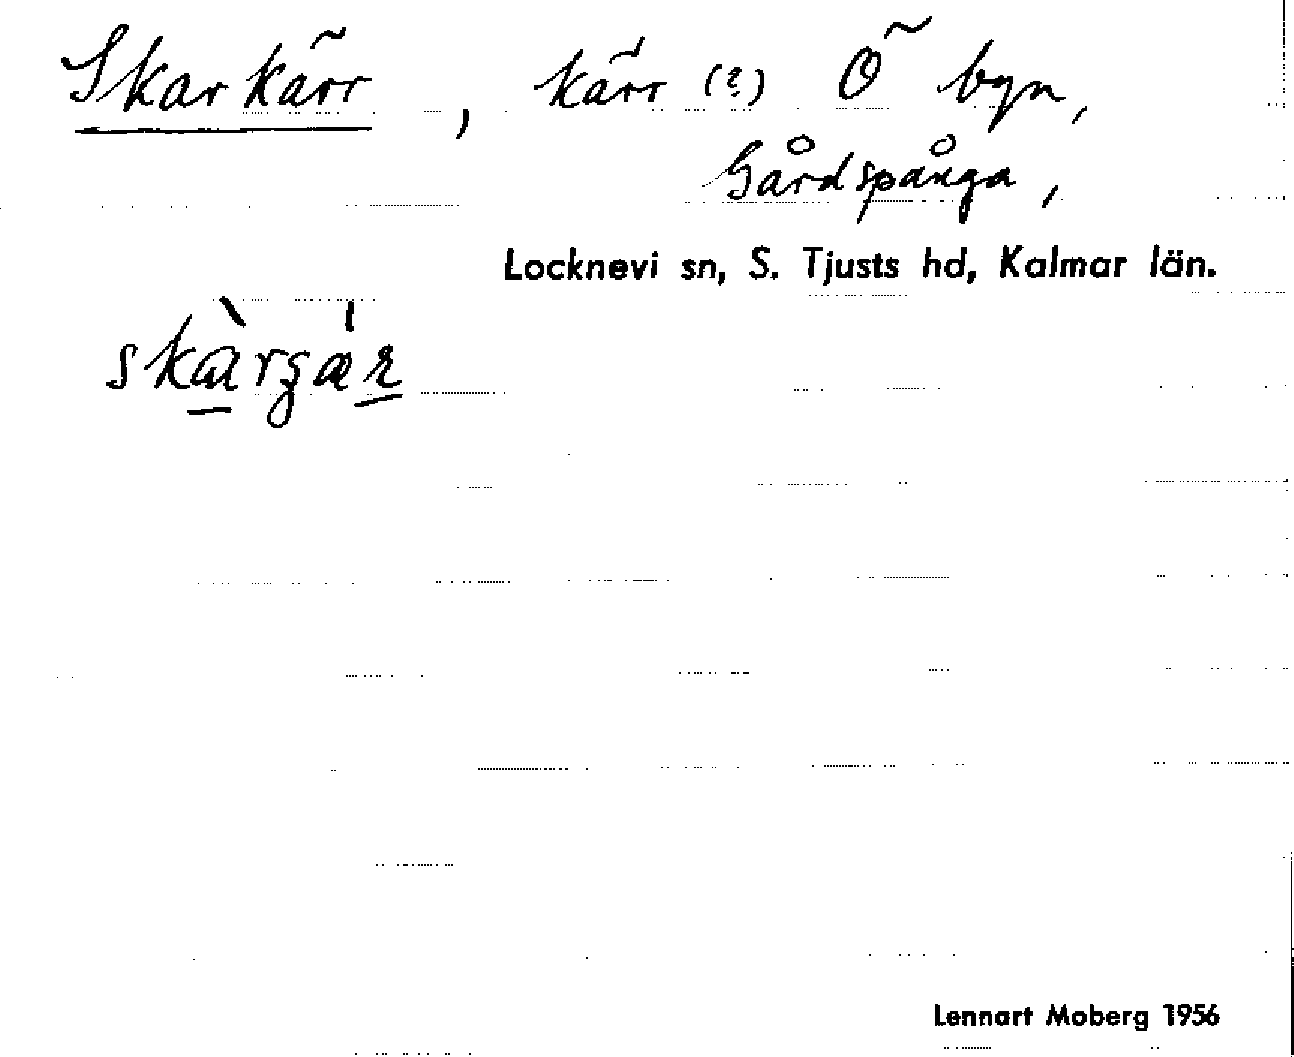 Skarkärr, kärr (?) Ö byn,
Gårdspånga,
Locknevi sn, S. Tjusts hd, Kalmar län.
Lennart Moberg 1956